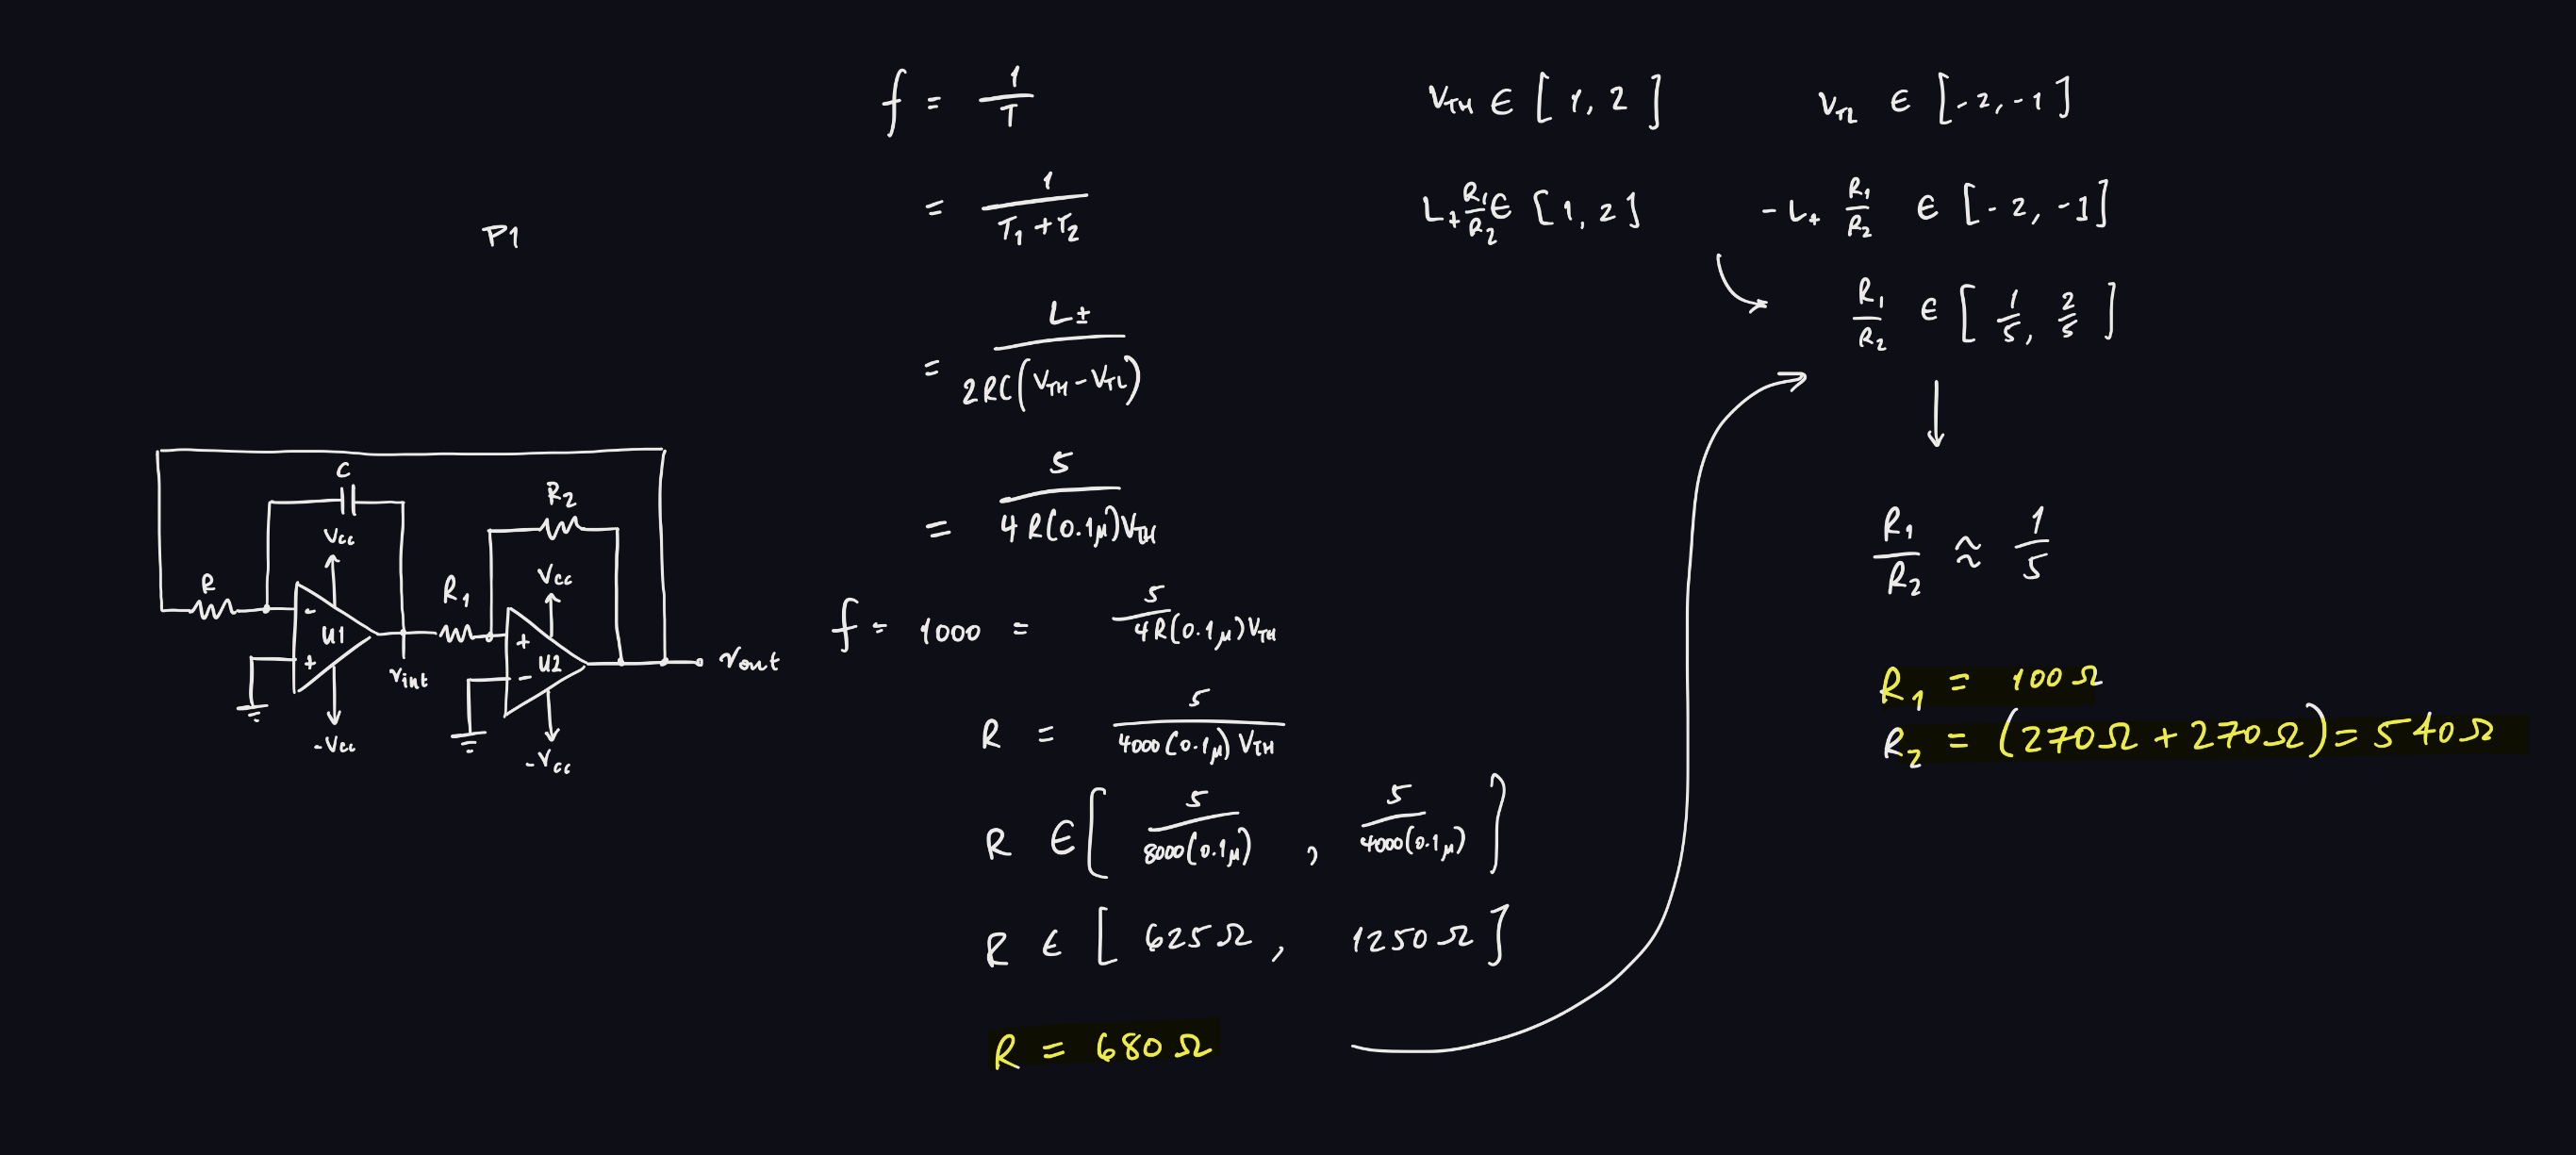 P1
C
Vcc
R
-
U1
+
-Vcc
Vint
R1
R2
Vcc
+
U2
-
-Vcc
Vout
f = 1/T
= 1/(T1 + T2)
= L±/(2RC(VTH - VTL))
= 5/(4R(0.1μ)VTH)
f = 1000 = 5/(4R(0.1μ)VTH)
R = 5/(4000(0.1μ)VTH)
R ∈ [5/(8000(0.1μ)), 5/(4000(0.1μ))]
R ∈ [625Ω, 1250Ω]
R = 680Ω
VTH ∈ [1, 2]
L+ R1/R2 ∈ [1, 2]
VTL ∈ [-2, -1]
-L+ R1/R2 ∈ [-2, -1]
R1/R2 ∈ [1/5, 2/5]
R1/R2 ≈ 1/5
R1 = 100Ω
R2 = (270Ω + 270Ω) = 540Ω